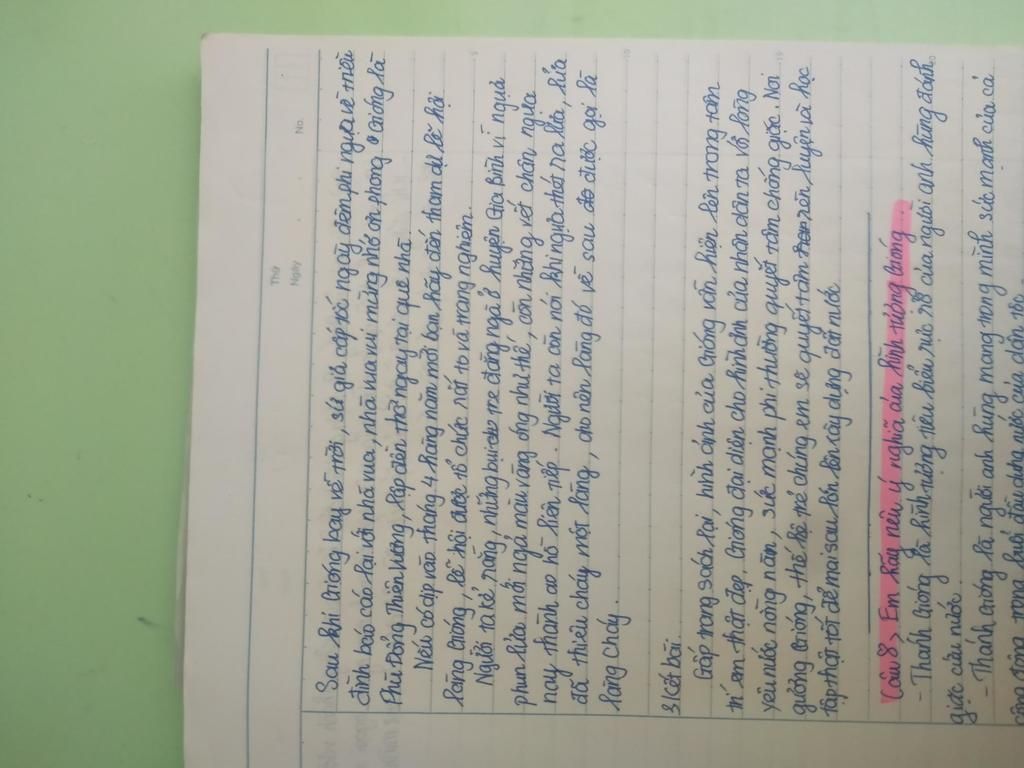 Thứ
Ngày
No.
Sau khi Gióng bay về trời, sứ giả cấp tốc ngày đêm phi ngựa về triều
đình báo cáo lại với nhà vua, nhà vua vui mừng nhớ ơn phong Gióng là
Phù Đổng Thiên Vương, lập đền thờ ngay tại quê nhà.
Nếu có dịp vào tháng 4 hằng năm mời bạn hãy đến tham dự lễ hội
làng Gióng, lễ hội được tổ chức rất to và trang nghiêm.
Người ta kể rằng, những bụi tre đằng ngà ở huyện Gia Bình vì ngựa
phun lửa mới ngả màu vàng óng như thế, còn những vết chân ngựa
nay thành ao hồ liên tiếp. Người ta còn nói khi ngựa thét ra lửa, lửa
đã thiêu cháy một làng, cho nên làng đó về sau được gọi là
làng Cháy.
3, Kết bài
Gấp trang sách lại, hình ảnh của Gióng vẫn hiện lên trong tâm
trí em thật đẹp, Gióng đại diện cho hình ảnh của nhân dân ta với lòng
yêu nước nồng nàn, sức mạnh phi thường quyết tâm chống giặc. Noi
gương Gióng, thế hệ trẻ chúng em sẽ quyết tâm rèn luyện và học
tập thật tốt để mai sau lớn lên xây dựng đất nước.
Câu 8, Em hãy nêu ý nghĩa của hình tượng Gióng
- Thánh Gióng là hình tượng tiêu biểu rực rỡ của người anh hùng đánh
giặc cứu nước.
- Thánh Gióng là người anh hùng mang trong mình sức mạnh của cả
cộng đồng trong buổi đầu dựng nước của dân tộc